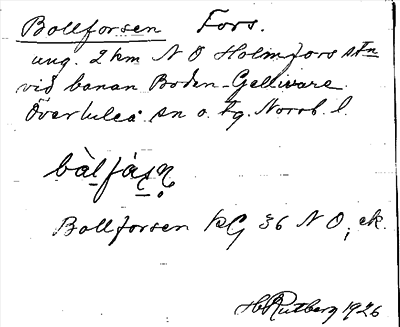 Bollforsen Fors.
ung. 2 km N O Holmfors stn
vid banan Boden-Gellivare.
Överluleå sn o. tg. Norrb. l.
Bollforsen kG 36 N O, ek.
H Rutberg 1926